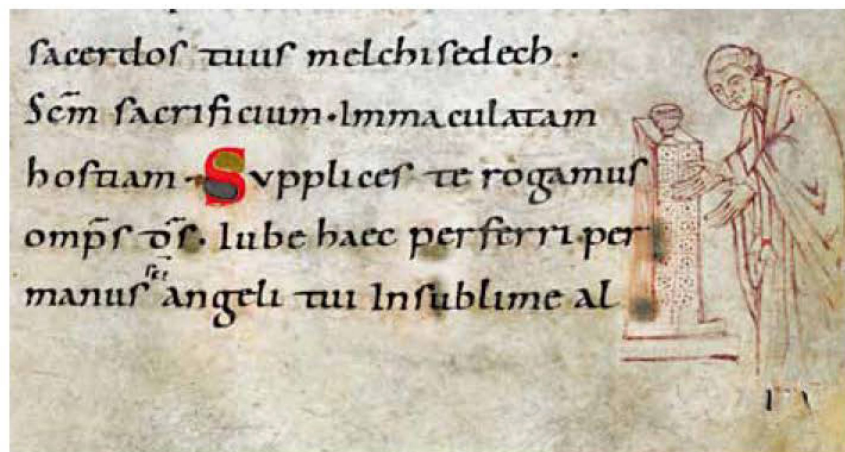 sacerdos tuus melchisedech ·
Scm̄ sacrificium · Immaculatam
hostiam · Supplices te rogamus
omp̄s d̄s · Iube haec perferri · per
manus sc̄i angeli tui In sublime al